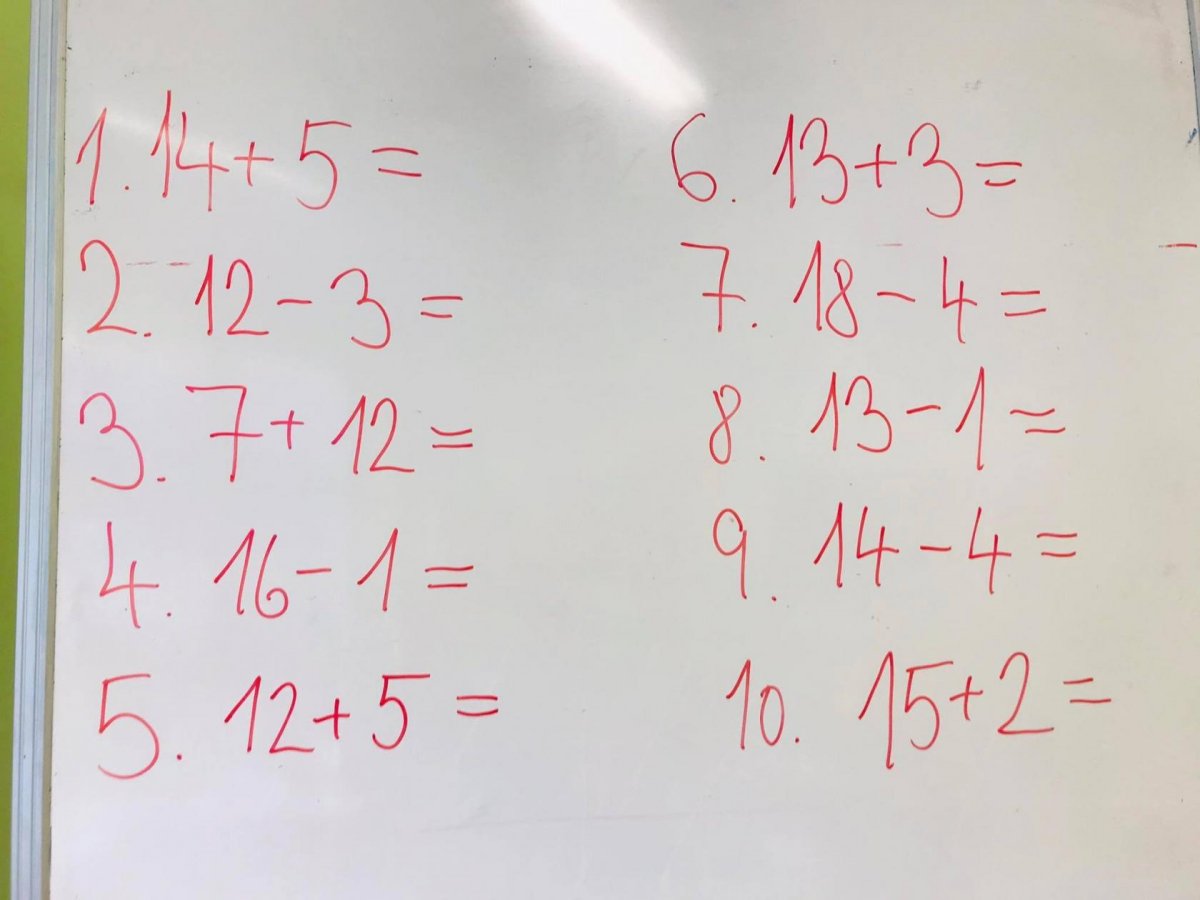 1. 14 + 5 =
2. 12 - 3 =
3. 7 + 12 =
4. 16 - 1 =
5. 12 + 5 =
6. 13 + 3 =
7. 18 - 4 =
8. 13 - 1 =
9. 14 - 4 =
10. 15 + 2 =